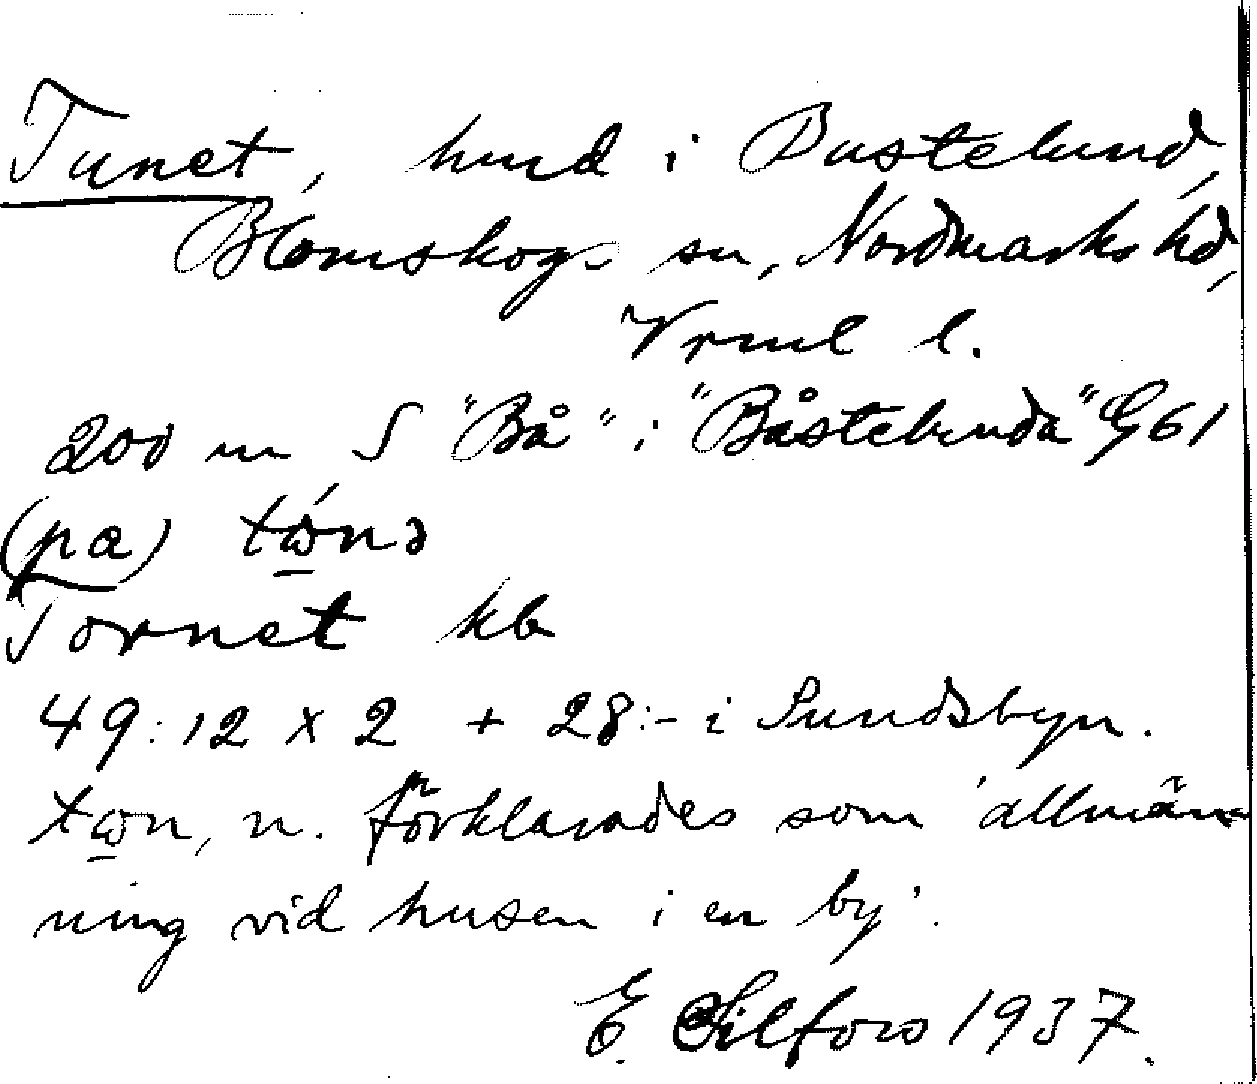 Tunet, hmd i Bastelund,
Blomskogs sn, Nordmarks hd,
Vrml l.
200 m S "Bå" i "Båstelunda" G61
(pa) tώ̱nə
Tornet kb
49:12 x 2 + 28:- i Sundsbyn.
tω̱n, n. förklarades som 'allmän-
ning vid husen i en by'.
E. Silfors 1937.